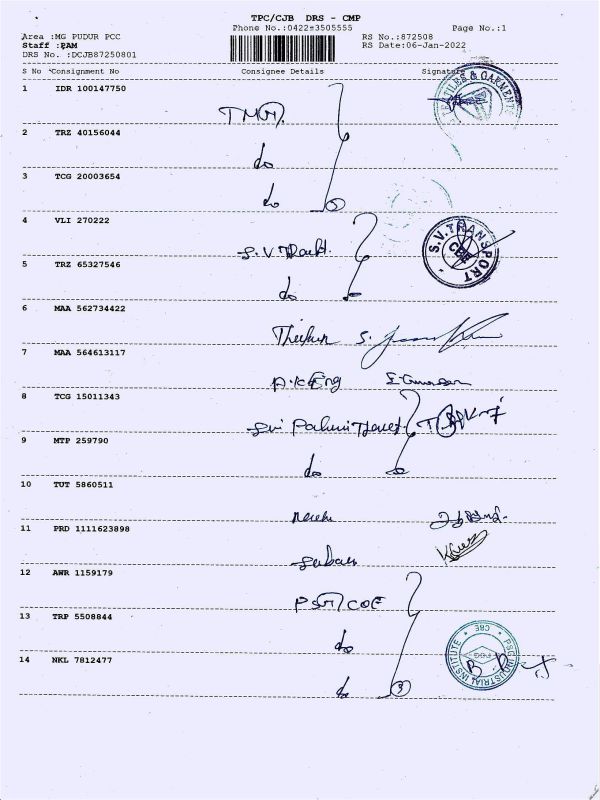 TPC/CJB DRS - CMP
Phone No.:0422±3505555 Page No.:1
Area :MG PUDUR PCC RS No.:872508
Staff :RAM RS Date:06-Jan-2022
DRS No. :DCJB87250801
S No Consignment No Consignee Details Signature
1 IDR 100147750
TEXTILES & GARMENTS
2 TRZ 40156044
do
3 TCG 20003654
do 3
4 VLI 270222
S.V
S.V.TRANSPORT
CBE
5 TRZ 65327546
do
6 MAA 562734422
7 MAA 564613117
8 TCG 15011343
9 MTP 259790
do
10 TUT 5860511
11 PRD 1111623898
12 AWR 1159179
PSG/COE
13 TRP 5508844
do
PSG INDUSTRIAL INSTITUTE
CBE
PSG
14 NKL 7812477
do 3